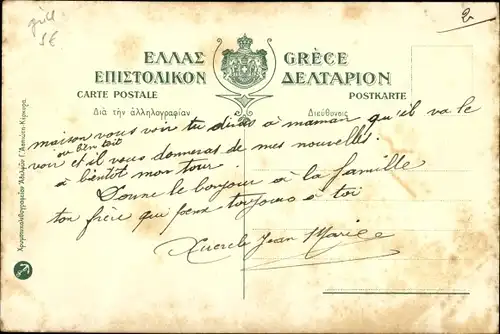 gill
5€
2
ΕΛΛΑΣ GRÈCE
ΕΠΙΣΤΟΛΙΚΟΝ ΔΕΛΤΑΡΙΟΝ
CARTE POSTALE POSTKARTE
Διὰ τὴν ἀλληλογραφίαν Διεύθυνσις
maison vous voir tu diras a maman qu'il va le
ou bien tait
voir et il vous donneras de mes nouvelles.
à bientot mon tour.
Donne le bonjour à la famille
ton frère qui pense toujours à toi
Jean Marie
Χρωμοτυπολιθογραφεῖον Ἀδελφῶν Γ. Ἀσπιώτη-Κέρκυρα.